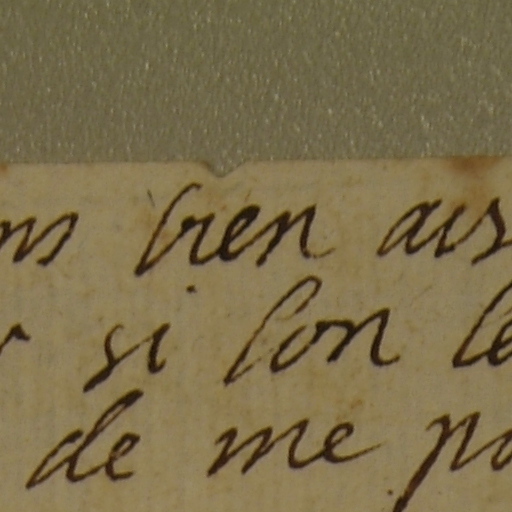 bien ais
si lon le
de me po